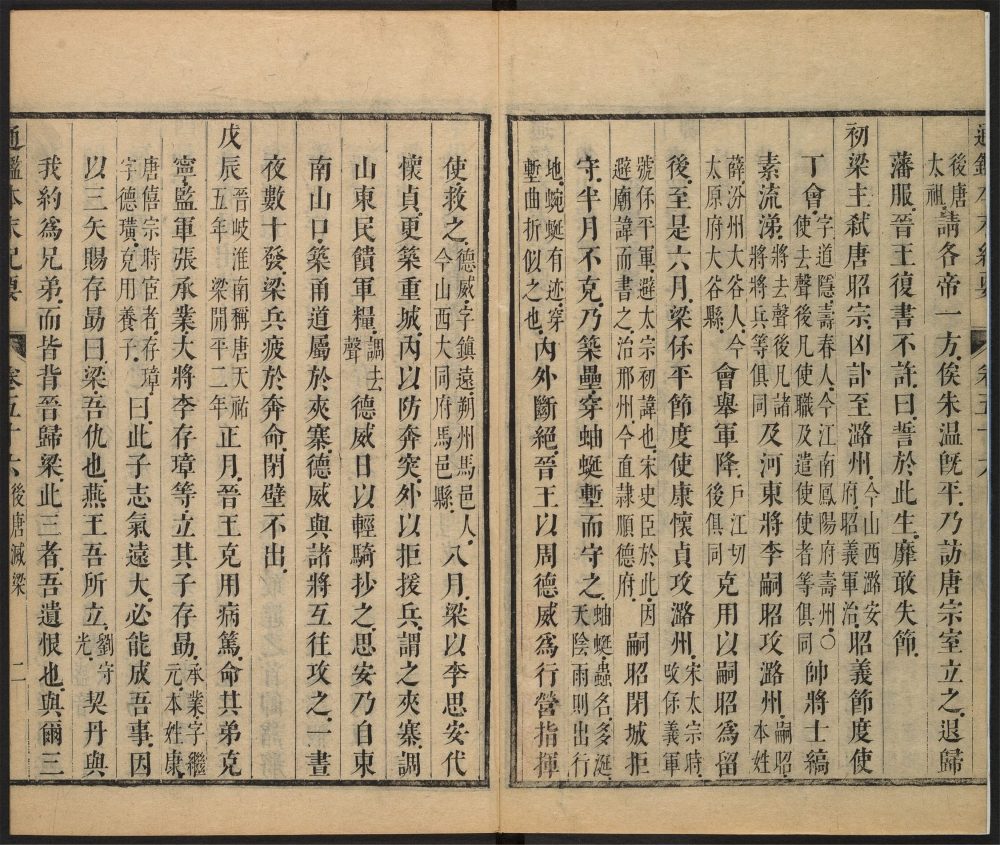 後唐太祖請各帝一方俟朱温旣平乃訪唐宗室立之退歸
藩服晉王復書不許曰誓於此生靡敢失節
初梁主弑唐昭宗凶訃至潞州今山西潞安府昭義軍治昭義節度使
丁會字道隱壽春人今江南鳳陽府壽州○使去聲後凡使職及遣使使者等俱同帥將士縞
素流涕將去聲後凡諸將將兵等俱同及河東將李嗣昭攻潞州嗣昭本姓
薛汾州大谷人今太原府大谷縣會舉軍降戶江切後俱同克用以嗣昭爲留
後至是六月梁保平節度使康懷貞攻潞州宋太宗時改保義軍
號保平軍避太宗初諱也宋史臣於此因避廟諱而書之治邢州今直隷順德府嗣昭閉城拒
守半月不克乃築壘穿蚰蜒塹而守之蚰蜒蟲名多涎天陰雨則出行
地蜿蜒有迹穿塹曲折似之也內外斷絕晉王以周德威爲行營指揮
使救之德威字鎮遠朔州馬邑人今山西大同府馬邑縣八月梁以李思安代
懷貞更築重城內以防奔突外以拒援兵謂之夾寨調
山東民饋軍糧調去聲德威日以輕騎抄之思安乃自東
南山口築甬道屬於夾寨德威與諸將互往攻之一晝
夜數十發梁兵疲於奔命閉壁不出
戊辰晉岐淮南稱唐天祐五年梁開平二年正月晉王克用病篤命其弟克
寧監軍張承業大將李存璋等立其子存勗承業字繼元本姓康
唐僖宗時宦者存璋字德璜克用養子曰此子志氣遠大必能成吾事因
以三矢賜存勗曰梁吾仇也燕王吾所立劉守光契丹與
我約爲兄弟而皆背晉歸梁此三者吾遺恨也與爾三
通鑑本末紀要
卷五十六
後唐滅梁
二